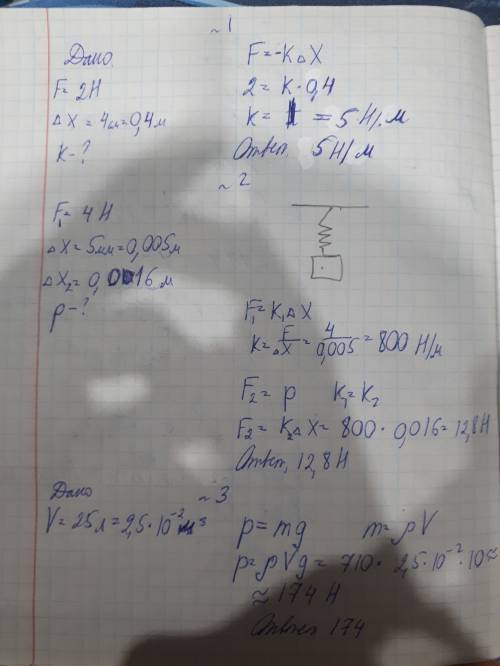 ~ 1
Дано
F = 2Н
Δ X = 4см = 0,4м
K - ?
F = -KΔX
2 = K · 0,4
K = = 5 Н/м
Ответ, 5Н/м
~ 2
F₁ = 4 Н
Δ X = 5мм = 0,005м
Δ X₂ = 0,0016 м
p - ?
F₁ = K₁ΔX
K = F/ΔX = 4/0,005 = 800 Н/м
F₂ = p K₁ = K₂
F₂ = K₂ΔX = 800 · 0,016 = 12,8Н
Ответ, 12,8 Н
~ 3
Дано
V = 25л = 2,5 · 10⁻² м³
p = mg m = ρV
p = ρVg = 710 · 2,5 · 10⁻² · 10 ≈
≈ 174 Н
Ответ 174